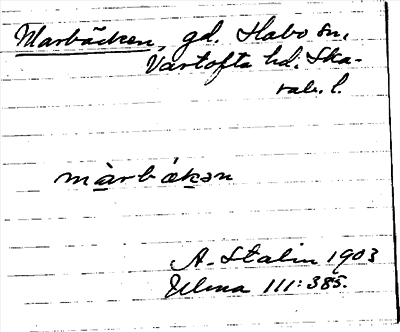 Marbäcken, gd. Habo sn,
Vartofta hd. Ska-
rab. l.
màrbákən
A. Stalin 1903
Ulma 111:385.